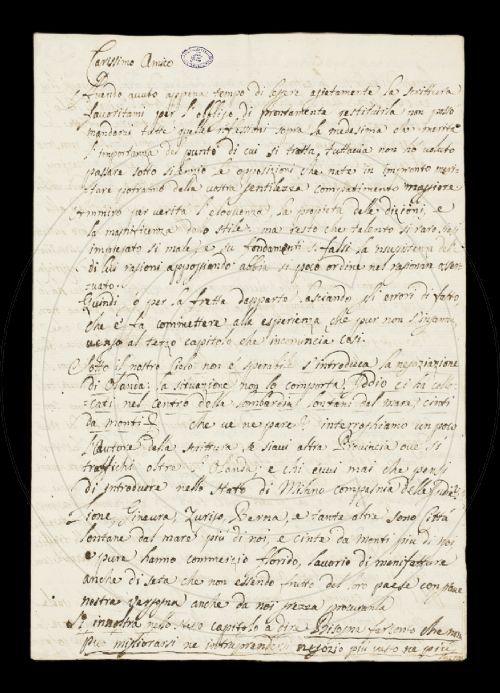 Carissimo Amico
Avendo avuto appena tempo di legere quietamente la scrittura
favoritami per l'obligo di prontamente restituirla non posso
mandarvi tutte quelle riflessioni sopra la medesima che merita
l'importanza del punto di cui si tratta, tuttavia non ho voluto
passare sotto silenzio le opposizioni che nate in impronto meri-
tare potranno dalla vostra gentilezza compatimento maggiore
Ammiro per verità l'eloquenza, la proprietà delle dizioni, e
la dello stile ma resto che talento sì raro siasi
sì male, e su fondamenti sì falsi la
di lui ragioni appoggiando abbia sì poco ordine nel raziocinio
Quindi o per la fretta lasciando gli errori di fatto,
che e fa commettere alla esperienza, che pur non
vengo al terzo capitolo che incomincia così.
Sotto il nostro Cielo non è sperabile s'introduca la negoziazione
di Olanda; la situazione non lo comporta, Iddio ci ha collo-
cati nel centro della Lombardia lontani dal mare, cinti
da monti che ve ne pare? interroghiamo un poco
l'autore della scrittura se siavi altra Provincia ove si
traffichi oltre l'Olanda; e chi evvi mai che pensi
di introdure nello stato di Milano compagnia delle Indie;
Lione, Ginevra, Zurigo, Berna, e tante altre sono Città
lontane dal mare più di noi, e cinte da monti più di noi
e pure hanno commercio florido, lavorio di manifatture
anche di seta che non essendo frutto del loro paese con
nostra vergogna anche da noi procurarla
Si innoltra nello stesso capitolo a dire Bisogna che non
può migliorarsi ne intraprendersi negozio più vasto ne più